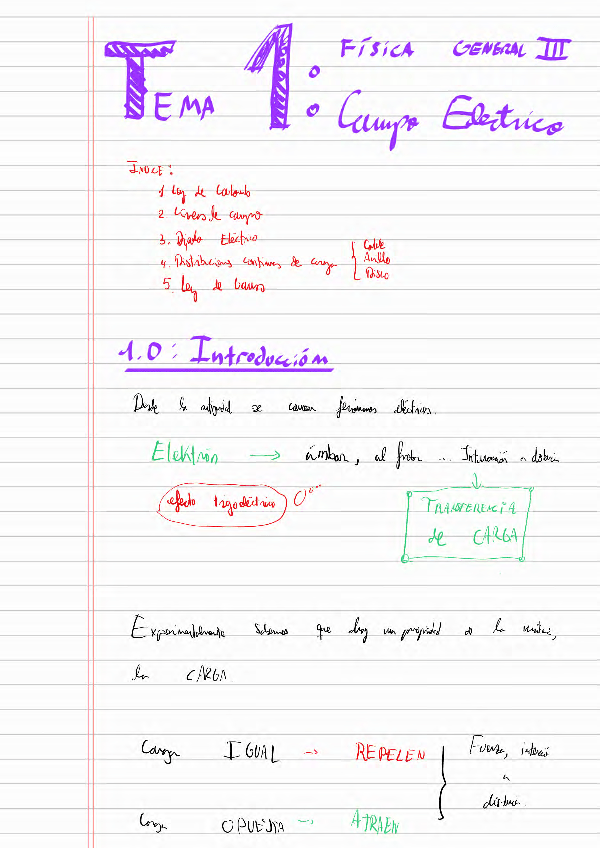 FÍSICA GENERAL III
TEMA 1:
Campo Electrico
ÍNDICE:
1 Ley de Coulomb
2 Líneas de campo
3. Dipolo Eléctrico
4. Distribuciones continuas de carga { Cable
Anillo
Disco
5. Ley de Gauss
1.0: Introducción
Desde la se conocen fenómenos eléctricos.
Elektrón → ámbar, al frotar ... Interacción a distancia
efecto triboeléctrico
TRANSFERENCIA
de CARGA
Experimentalmente sabemos que hay una propiedad de la materia,
la CARGA
Carga IGUAL → REPELEN
Carga OPUESTA → ATRAEN
Fuerza,
a
distancia